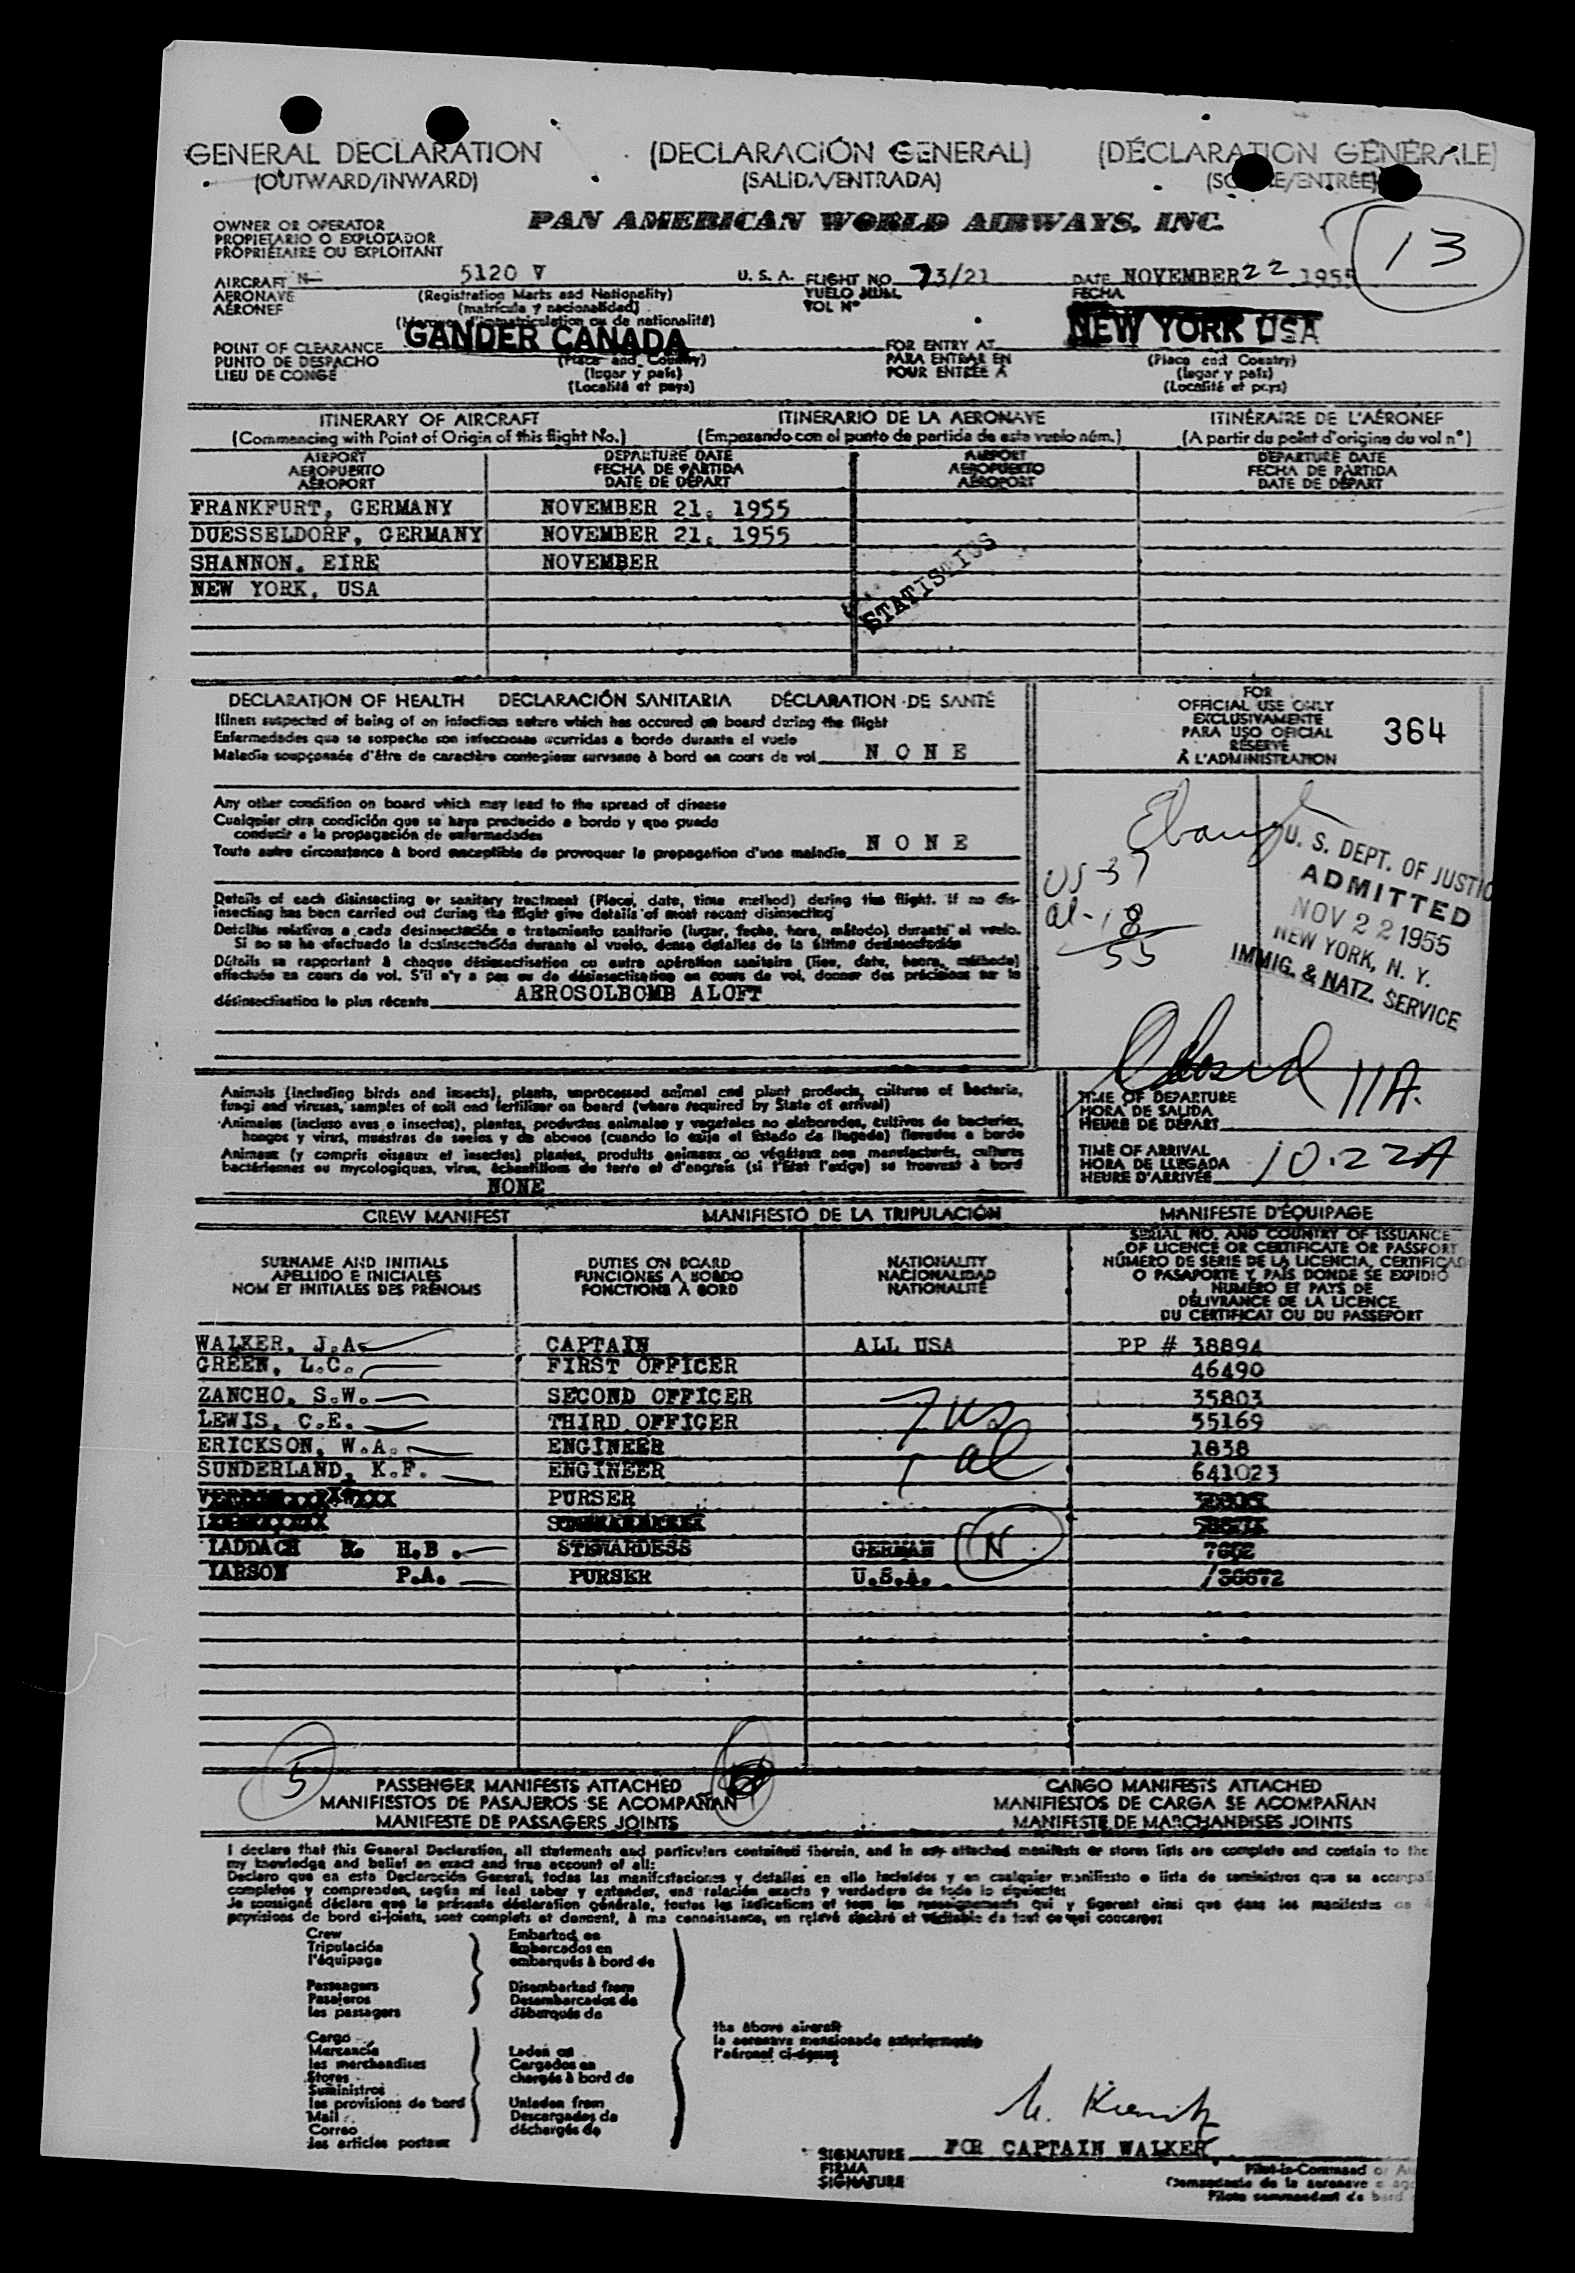 GENERAL DECLARATION (DECLARACIÓN GENERAL) (DÉCLARATION GÉNÉRALE)
(OUTWARD/INWARD) (SALIDA/ENTRADA)
13
OWNER OR OPERATOR
PROPIETARIO O EXPLOTADOR
PROPRIÉTAIRE OU EXPLOITANT
PAN AMERICAN WORLD AIRWAYS, INC.
AIRCRAFT N 5120 V U. S. A. FLIGHT NO. 73/21 DATE NOVEMBER 22 1955
AERONAVE (Registration Marks and Nationality) VUELO NUM. FECHA
AÉRONEF (matrícula y nacionalidad) VOL Nº
(Marques d'immatriculation ou de nationalité)
POINT OF CLEARANCE GANDER CANADA FOR ENTRY AT NEW YORK USA
PUNTO DE DESPACHO (Place and Country) PARA ENTRAR EN (Place and Country)
LIEU DE CONGÉ (lugar y país) POUR ENTRÉE À (lugar y país)
(Localité et pays) (Localité et pays)
ITINERARY OF AIRCRAFT ITINERARIO DE LA AERONAVE ITINÉRAIRE DE L'AÉRONEF
(Commencing with Point of Origin of this flight No.) (Empezando con el punto de partida de este vuelo núm.) (A partir du point d'origine du vol nº)
AIRPORT DEPARTURE DATE AIRPORT DEPARTURE DATE
AEROPUERTO FECHA DE PARTIDA AEROPUERTO FECHA DE PARTIDA
AÉROPORT DATE DE DÉPART AÉROPORT DATE DE DÉPART
FRANKFURT, GERMANY NOVEMBER 21, 1955
DUESSELDORF, GERMANY NOVEMBER 21, 1955
SHANNON, EIRE NOVEMBER
NEW YORK, USA
STATISTICS
DECLARATION OF HEALTH DECLARACIÓN SANITARIA DÉCLARATION DE SANTÉ
Illness suspected of being of an infectious nature which has occured on board during the flight
Enfermedades que se sospecha son infecciosas ocurridas a bordo durante el vuelo
Maladie soupçonnée d'être de caractère contagieux survenue à bord en cours de vol N O N E
Any other condition on board which may lead to the spread of disease
Cualquier otra condición que se haya producido a bordo y que pueda
conducir a la propagación de enfermedades
Toute autre circonstance à bord susceptible de provoquer la propagation d'une maladie N O N E
Details of each disinsecting or sanitary treatment (Place, date, time method) during the flight. If no dis-
insecting has been carried out during the flight give details of most recent disinsecting
Detalles relativos a cada desinsectación o tratamiento sanitario (lugar, fecha, hora, método) durante el vuelo.
Si no se ha efectuado la desinsectación durante el vuelo, dense detalles de la última desinsectación
Détails se rapportant à chaque désinsectisation ou autre opération sanitaire (lieu, date, heure, méthode)
effectuée en cours de vol. S'il n'y a pas eu de désinsectisation en cours de vol, donner des précisions sur la
désinsectisation la plus récente AEROSOLBOMB ALOFT
FOR
OFFICIAL USE ONLY
EXCLUSIVAMENTE
PARA USO OFICIAL
RÉSERVÉ
À L'ADMINISTRATION
364
US-37
al-18
55
U. S. DEPT. OF JUSTIC
ADMITTED
NOV 22 1955
NEW YORK, N. Y.
IMMIG. & NATZ. SERVICE
Closed 11A.
Animals (including birds and insects), plants, unprocessed animal and plant products, cultures of bacteria,
fungi and viruses, samples of soil and fertilizer on board (where required by State of arrival)
Animales (incluso aves e insectos), plantas, productos animales y vegetales no elaborados, cultivos de bacterias,
hongos y virus, muestras de suelos y de abonos (cuando lo exija el Estado de llegada) llevados a bordo
Animaux (y compris oiseaux et insectes) plantes, produits animaux ou végétaux non manufacturés, cultures
bactériennes ou mycologiques, virus, échantillons de terre et d'engrais (si l'Etat l'exige) se trouvant à bord
NONE
TIME OF DEPARTURE
HORA DE SALIDA
HEURE DE DÉPART
TIME OF ARRIVAL
HORA DE LLEGADA
HEURE D'ARRIVÉE 10.22A
CREW MANIFEST MANIFIESTO DE LA TRIPULACIÓN MANIFESTE D'ÉQUIPAGE
SURNAME AND INITIALS
APELLIDO E INICIALES
NOM ET INITIALES DES PRÉNOMS
DUTIES ON BOARD
FUNCIONES A BORDO
FONCTIONS À BORD
NATIONALITY
NACIONALIDAD
NATIONALITÉ
SERIAL NO. AND COUNTRY OF ISSUANCE
OF LICENCE OR CERTIFICATE OR PASSPORT
NÚMERO DE SERIE DE LA LICENCIA, CERTIFICAD
O PASAPORTE Y PAÍS DONDE SE EXPIDIÓ
NUMÉRO ET PAYS DE
DÉLIVRANCE DE LA LICENCE
DU CERTIFICAT OU DU PASSEPORT
WALKER, J.A. CAPTAIN ALL USA PP # 38894
GREEN, L.C. FIRST OFFICER 46490
ZANCHO, S.W. SECOND OFFICER 35803
LEWIS, C.E. THIRD OFFICER 7 us 55169
ERICKSON, W.A. ENGINEER 1 al 1838
SUNDERLAND, K.F. ENGINEER 641023
PURSER
LADDACH H.B. STEWARDESS GERMAN N 7602
LARSON P.A. PURSER U.S.A. 36672
5
PASSENGER MANIFESTS ATTACHED CARGO MANIFESTS ATTACHED
MANIFIESTOS DE PASAJEROS SE ACOMPAÑAN MANIFIESTOS DE CARGA SE ACOMPAÑAN
MANIFESTE DE PASSAGERS JOINTS MANIFESTE DE MARCHANDISES JOINTS
I declare that this General Declaration, all statements and particulars contained therein, and in any attached manifests or stores lists are complete and contain to the
my knowledge and belief an exact and true account of all:
Declaro que en esta Declaración General, todas las manifestaciones y detalles en ella incluidos y en cualquier manifiesto o lista de suministros que se acompa
completos y comprenden, según mi leal saber y entender, una relación exacta y verdadera de todo lo siguiente:
Je soussigné déclare que la présente déclaration générale, toutes les indications et tous les renseignements qui y figurent ainsi que dans les manifestes
provisions de bord ci-joints, sont complets et donnent, à ma connaissance, un relevé sincère et véritable de tout ce qui concerne:
Crew Embarked on
Tripulación Embarcados en
l'équipage embarqués à bord de
Passengers Disembarked from
Pasajeros Desembarcados de
les passagers débarqués de
the above aircraft
la aeronave mencionada anteriormente
l'aéronef ci-dessus
Cargo
Mercancía Laden on
les marchandises Cargados en
Stores chargés à bord de
Suministros
les provisions de bord Unladen from
Mail Descargados de
Correo déchargés de
les articles postaux
SIGNATURE FOR CAPTAIN WALKER
FIRMA Pilot-in-Command
SIGNATURE Comandante de la aeronave
Pilote commandant de bord